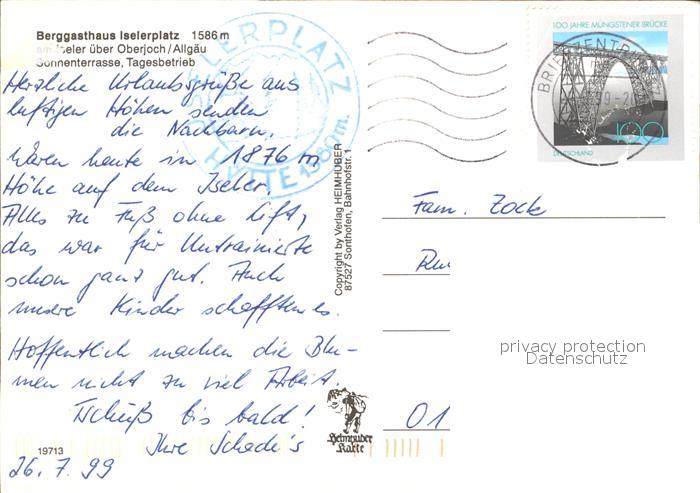 Berggasthaus Iselerplatz 1586 m
am Iseler über Oberjoch/Allgäu
Sonnenterrasse, Tagesbetrieb
ISELERPLATZ
HÜTTE 1580 m.
Herzliche Urlaubsgrüße aus
luftigen Höhen senden
die Nachbarn.
Waren heute in 1876 m
Höhe auf dem Iseler.
Alles zu Fuß ohne Lift,
das war für Untrainierte
schon ganz gut. Auch
unsere Kinder schafften es.
Hoffentlich machen die Blu-
men nicht zu viel Arbeit.
Tschüß bis bald!
Ihre Schade's
26.7.99
19713
Copyright by Verlag HEIMHUBER
87527 Sonthofen, Bahnhofstr. 1
Heimhuber
Karte
100 JAHRE MÜNGSTENER BRÜCKE
100
DEUTSCHLAND
BRIEFZENTRUM
Fam. Zock
01
privacy protection
Datenschutz